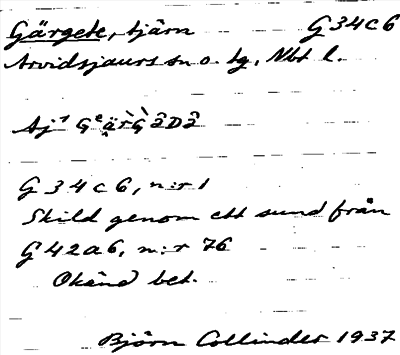 Gärgete, tjärn G34c6
Arvidsjaurs sn o. tg, Nbt l.
Aj¹
G34c6, n:r 1
Skild genom ett sund från
G42a6, n:r 76
Okänd bet.
Björn Collinder 1937